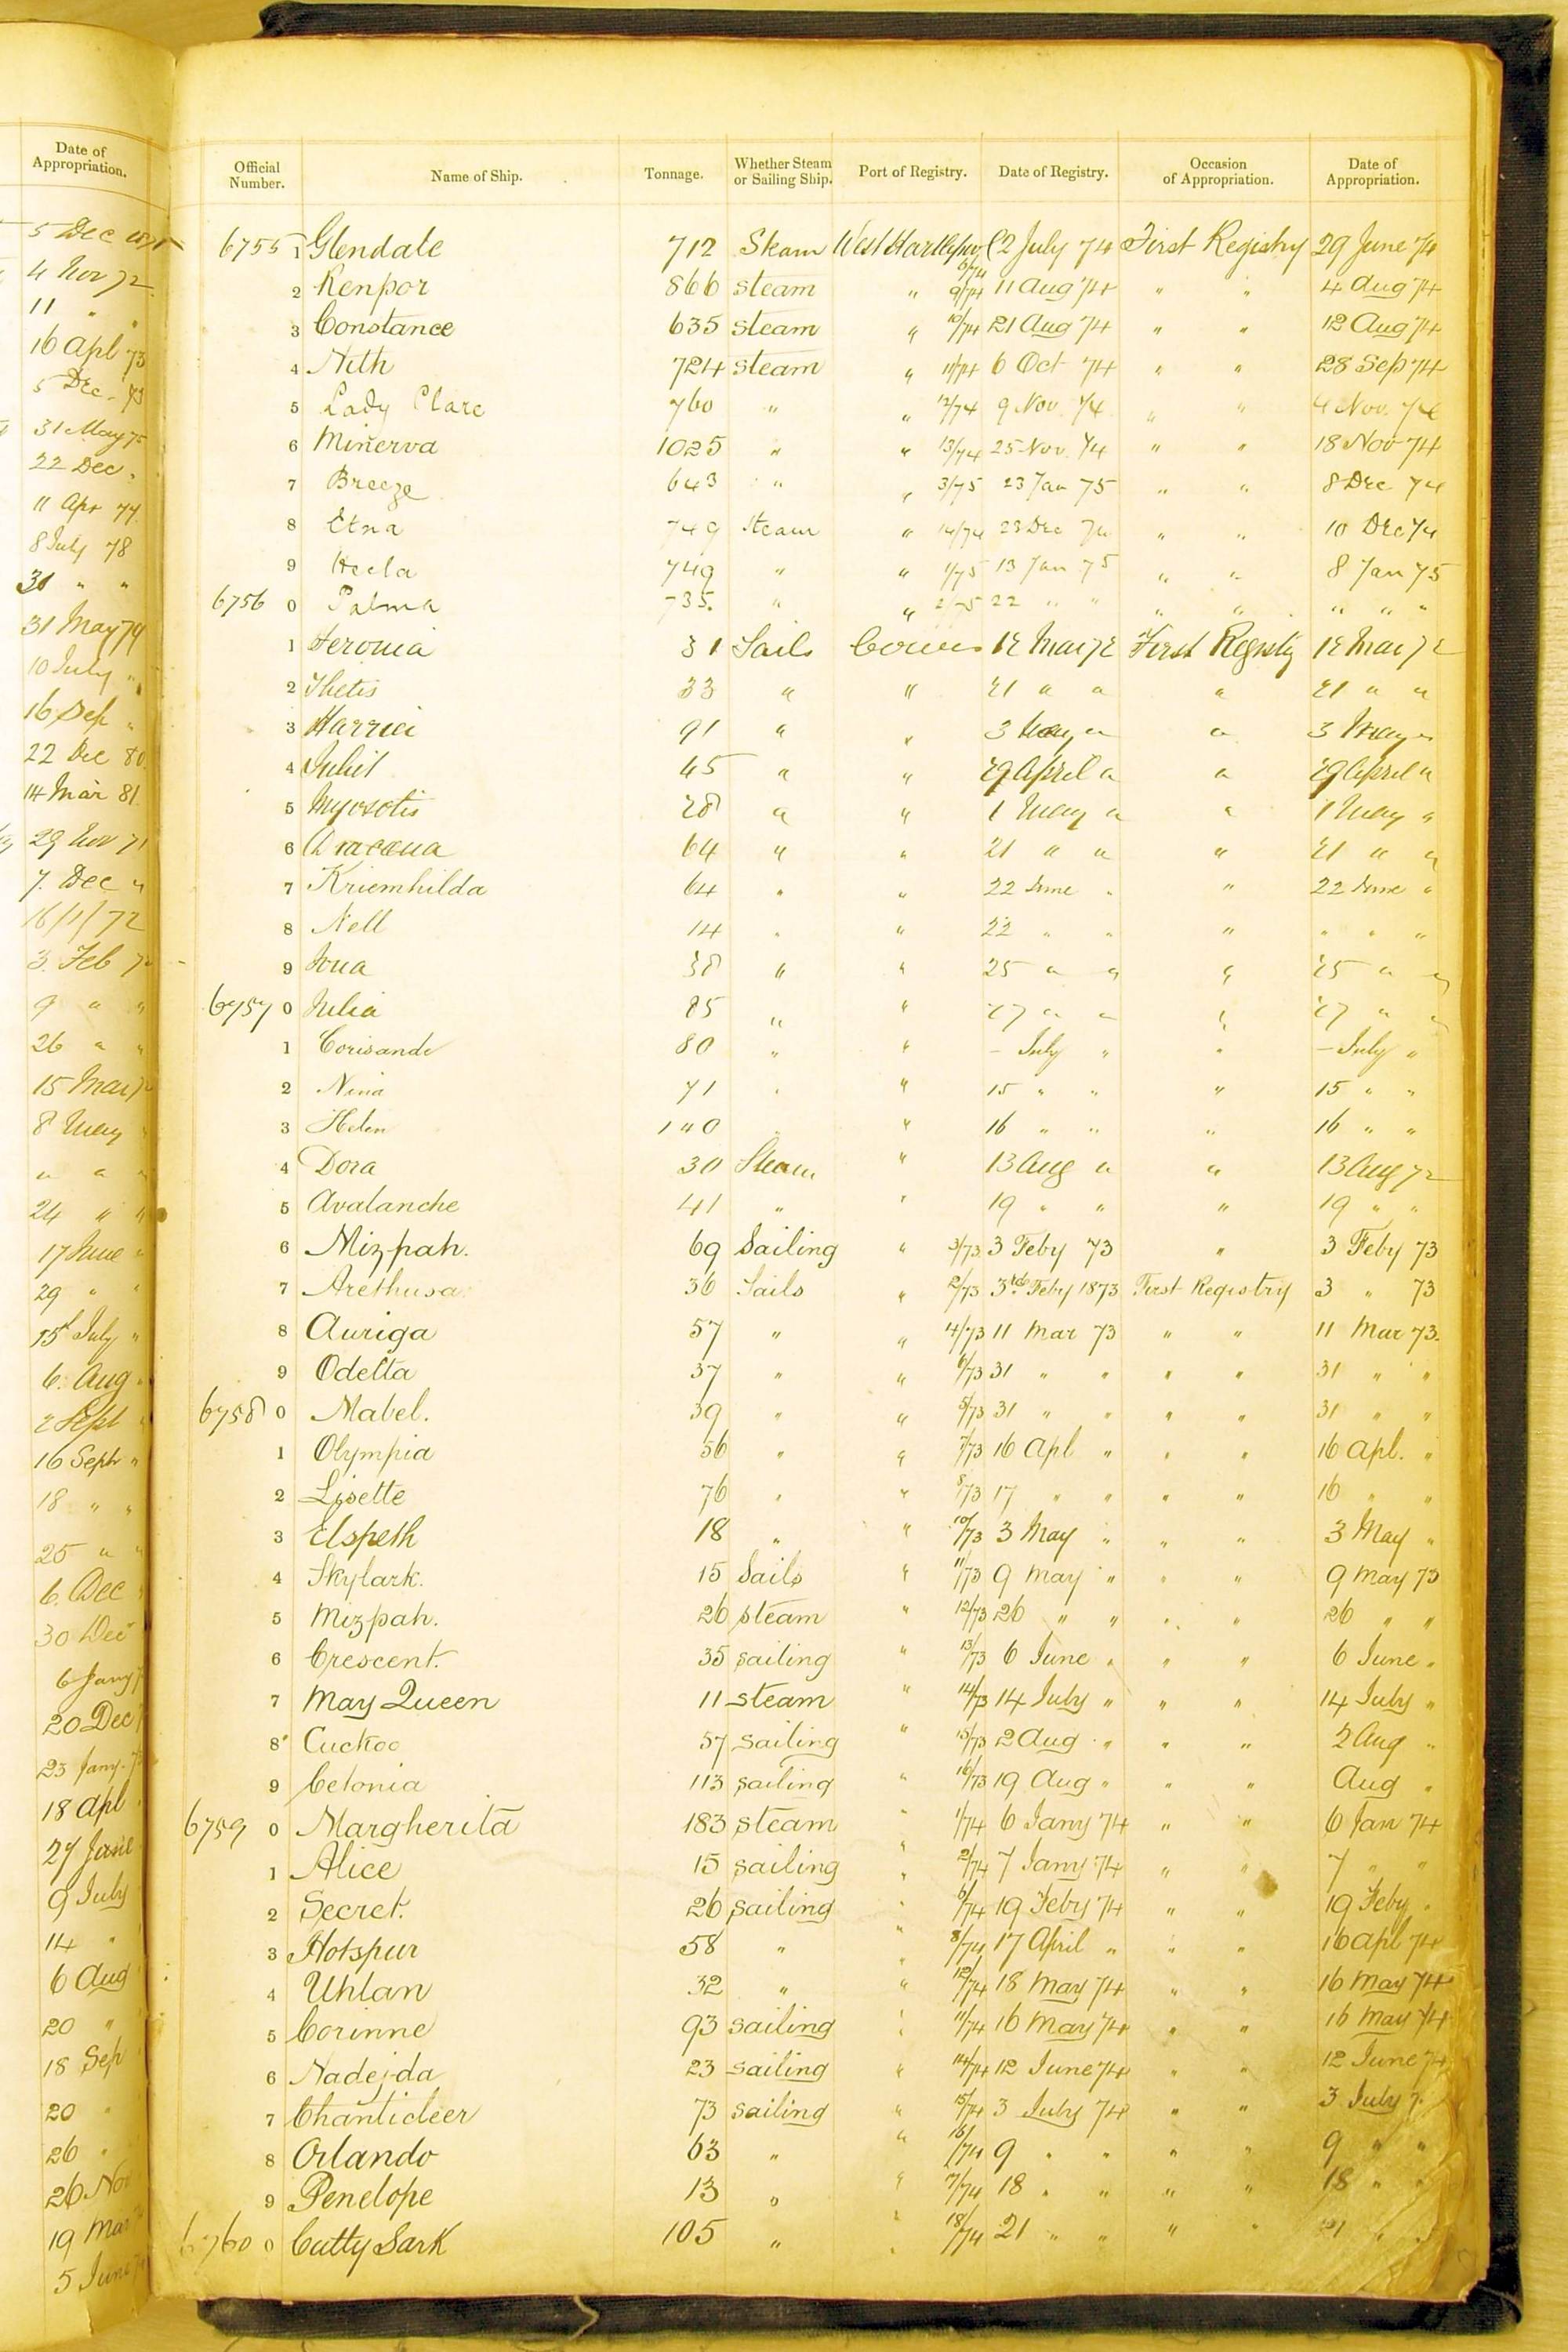 Date of
Appropriation.
5 Dec
4 Nov 72
11 " "
16 Apl 73
5 Dec. 73
31 May 75
22 Dec.
11 Apr 77
8 July 78
30 " "
31 May 79
10 July "
16 Sep "
22 Dec 80
14 Mar 81
29 Nov 71
7. Dec "
16/1/72
3. Feb 72
9 " "
26 " "
15 Mar 72
8 May
" " "
24 " "
17 June "
29 " "
15 July "
6. Aug.
2 Sept
16 Sept "
18 " "
25 " "
6. Dec
30 Dec
6 Jany
20 Dec
23 Jany.
18 Apl
27 June
9 July
14 "
6 Aug
20 "
18 Sep
20 "
26 "
26 Nov
19 Mar
5 June
Official Number. Name of Ship. Tonnage. Whether Steam or Sailing Ship. Port of Registry. Date of Registry. Occasion of Appropriation. Date of Appropriation.
6755 1 Glendale 712 Steam West Hartlepool 6/74 2 July 74 First Registry 29 June 74
2 Kenpor 866 steam " 9/74 11 Aug 74 " " 4 Aug 74
3 Constance 635 steam " 10/74 21 Aug 74 " " 12 Aug 74
4 Nith 724 steam " 11/74 6 Oct 74 " " 28 Sep 74
5 Lady Clare 760 " " 12/74 9 Nov 74 " " 4 Nov. 74
6 Minerva 1025 " " 13/74 25 Nov. 74 " " 18 Nov 74
7 Breeze 643 " " 3/75 23 Jan 75 " " 8 Dec 74
8 Etna 749 Steam " 14/74 23 Dec 74 " " 10 Dec 74
9 Hecla 749 " " 1/75 13 Jan 75 " " 8 Jan 75
6756 0 Palma 735. " " 2/75 22 " " " " " " "
1 Feronia 31 Sails Cowes 12 Mar 72 First Registy 12 Mar 72
2 Thetis 33 " " 21 " " " 21 " "
3 Harriet 91 " " 3 May " " 3 May "
4 Juliet 45 " " 29 April " " 29 April "
5 Myosotis 28 " " 1 May " " 1 May "
6 Dracaena 64 " " 21 " " " 21 " "
7 Kriemhilda 64 " " 22 June " " 22 June "
8 Nell 14 " " 22 " " " " " "
9 Iona 38 " " 25 " " " 25 " "
6757 0 Julia 85 " " 27 " " " 27 " "
1 Corisande 80 " " - July " " - July "
2 Nina 71 " " 15 " " " 15 " "
3 Helen 140 " " 16 " " " 16 " "
4 Dora 30 Steam " 13 Aug " " 13 Aug 72
5 Avalanche 41 " " 19 " " " 19 " "
6 Mizpah. 69 Sailing " 3/73 3 Feby 73 " 3 Feby 73
7 Arethusa 36 Sails " 2/73 3rd Feby 1873 First Registry 3 " 73
8 Auriga 57 " " 4/73 11 Mar 73 " " 11 Mar 73.
9 Odetta 37 " " 6/73 31 " " " " 31 " "
6758 0 Mabel. 39 " " 5/73 31 " " " " 31 " "
1 Olympia 56 " " 7/73 16 Apl " " " 16 Apl. "
2 Lisette 76 " " 8/73 17 " " " " 16 " "
3 Elspeth 18 " " 10/73 3 May " " " 3 May "
4 Skylark. 15 Sails " 11/73 9 May " " " 9 May 73
5 Mizpah. 26 steam " 12/73 26 " " " " 26 " "
6 Crescent. 35 sailing " 13/73 6 June " " " 6 June "
7 May Queen 11 steam " 14/73 14 July " " " 14 July "
8 Cuckoo 57 sailing " 15/73 2 Aug " " " 2 Aug "
9 Cetonia 113 sailing " 16/73 19 Aug " " " Aug "
6759 0 Margherita 183 steam " 1/74 6 Jany 74 " " 6 Jan 74
1 Alice 15 sailing " 2/74 7 Jany 74 " " 7 " "
2 Secret. 26 sailing " 6/74 19 Feby 74 " " 19 Feby "
3 Hotspur 58 " " 8/74 17 April " " " 16 Apl 74
4 Uhlan 32 " " 12/74 18 May 74 " " 16 May 74
5 Corinne 93 sailing " 11/74 16 May 74 " " 16 May 74
6 Nadejda 23 sailing " 14/74 12 June 74 " " 12 June 74
7 Chanticleer 73 sailing " 15/74 3 July 74 " " 3 July 7
8 Orlando 63 " " 16/74 9 " " " " 9 " "
9 Penelope 13 " " 7/74 18 " " " " 18 " "
6760 0 Cutty Sark 105 " " 18/74 21 " " " " 21 " "